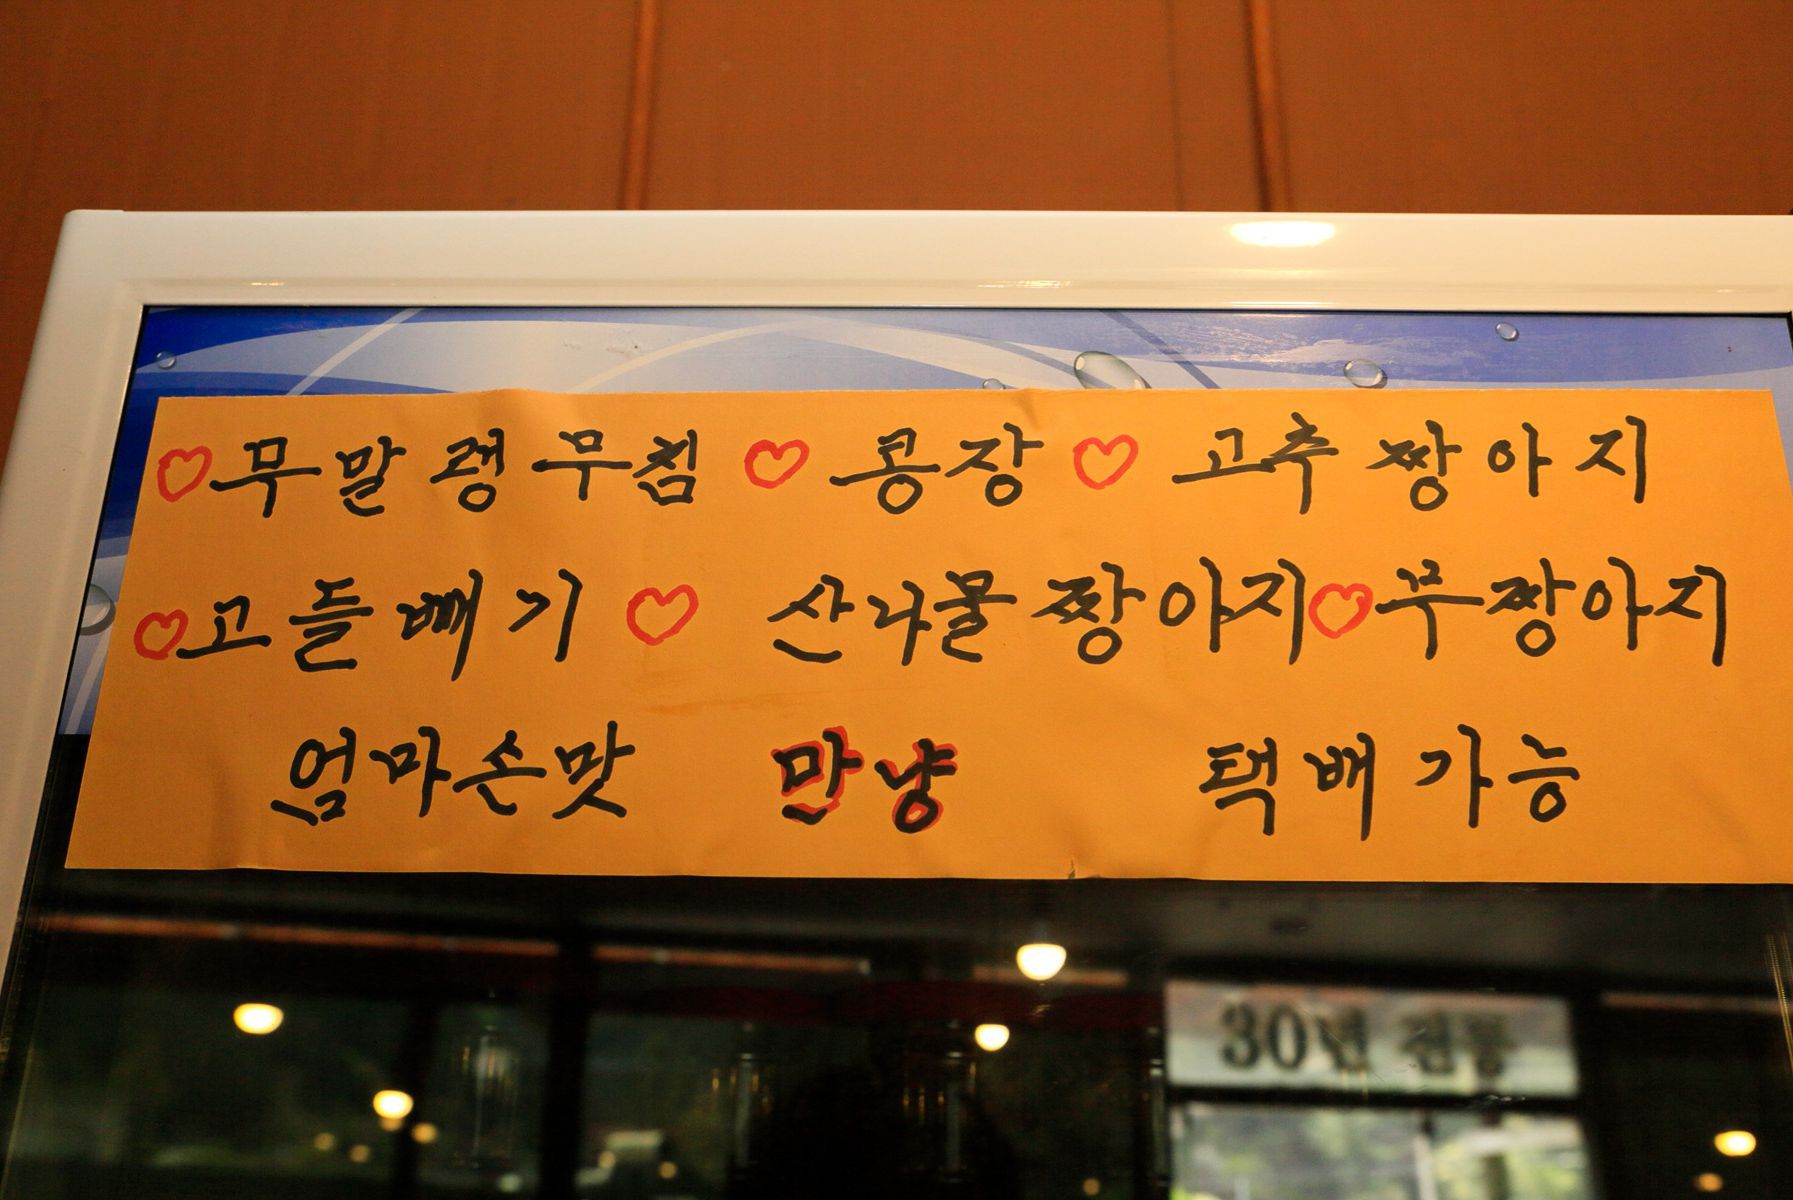 ♡무말랭무침 ♡ 콩장 ♡ 고추짱아지
♡고들빼기 ♡ 산나물짱아지♡무짱아지
엄마손맛 만냥 택배가능
30년 전통